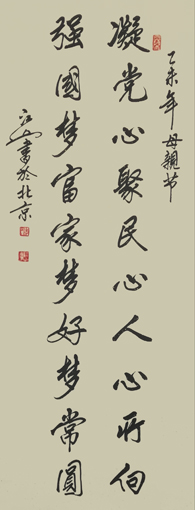 乙未年母親节
凝党心聚民心人心所向
强國梦富家梦好梦常圓
書於北京